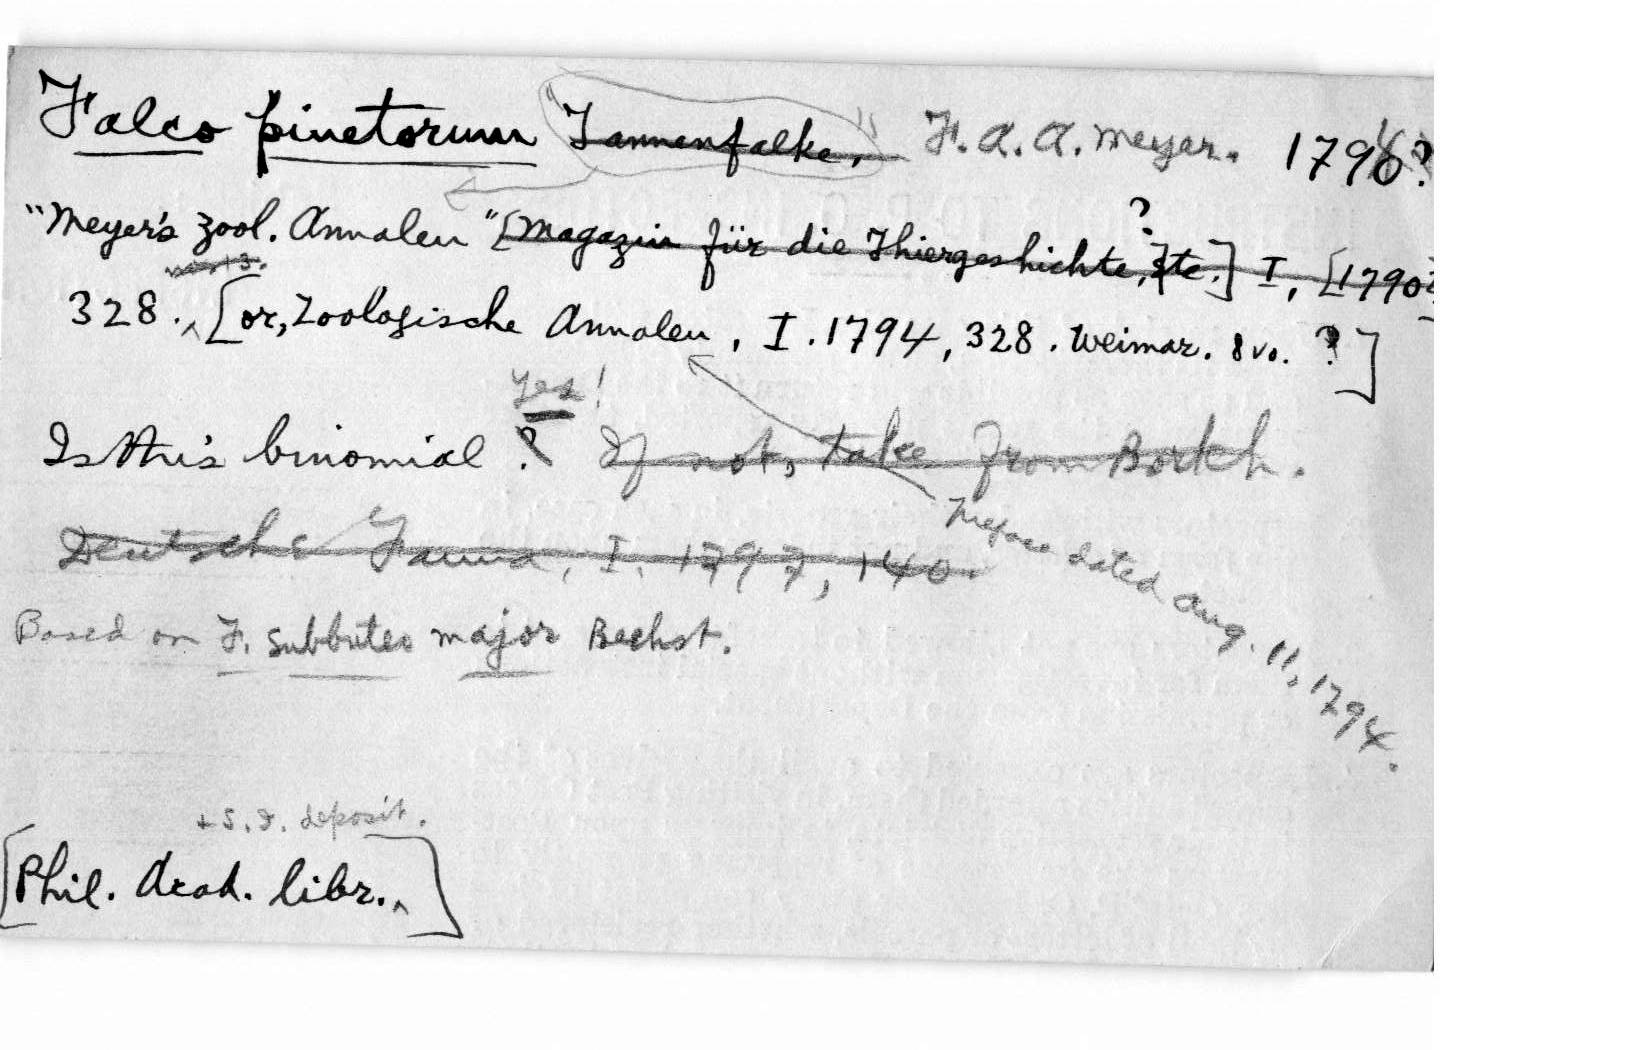 Falco pinetorum Tannenfalke. F. A. A. Meyer. 1790?
"Meyer's Zool. Annalen" [Magazin für die Thiergeshichte, &tc.]? I, [1790?
328. [or, Zoologische Annalen, I. 1794, 328. Weimar. 8vo. ?]
Yes!
Is this binomial? If not, take from Borkh.
Deutsche Fauna, I. 1797, 140.
Preface dated Aug. 11, 1794.
Based on F. subbuteo major Bechst.
+ S. I. deposit.
[Phil. Acad. libr.]